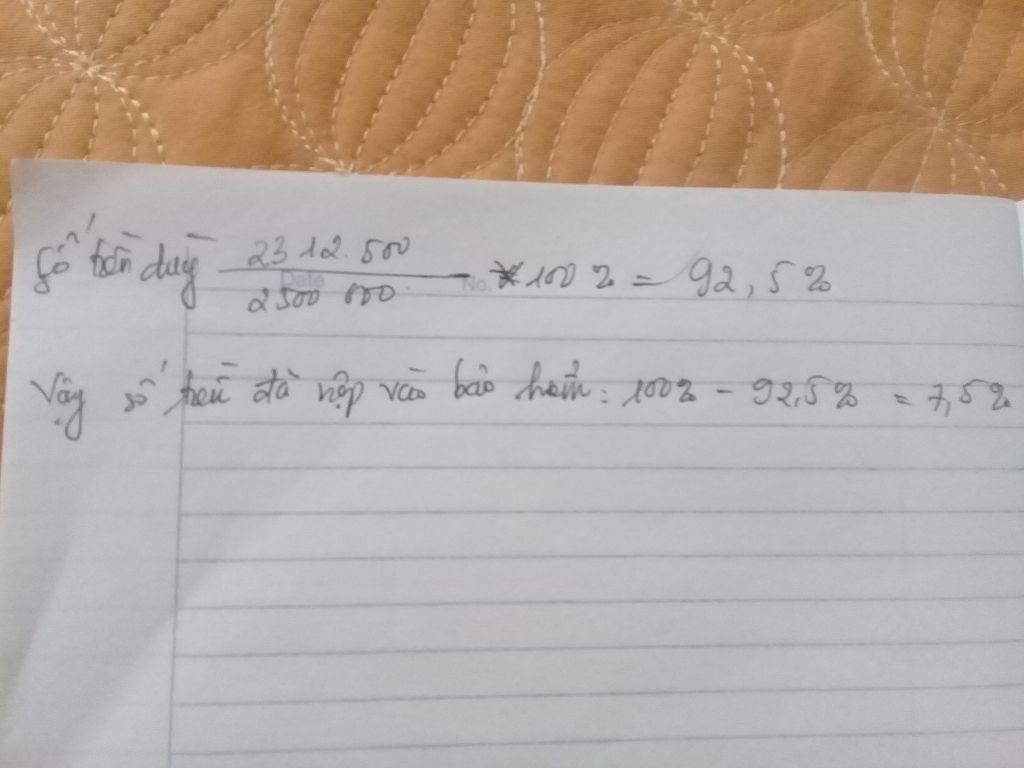 Số tiền dung 2312.500 / 2500 000 * 100% = 92,5%
Date No.
Vậy số tiền đã nộp vào bảo hiểm: 100% - 92,5% = 7,5%